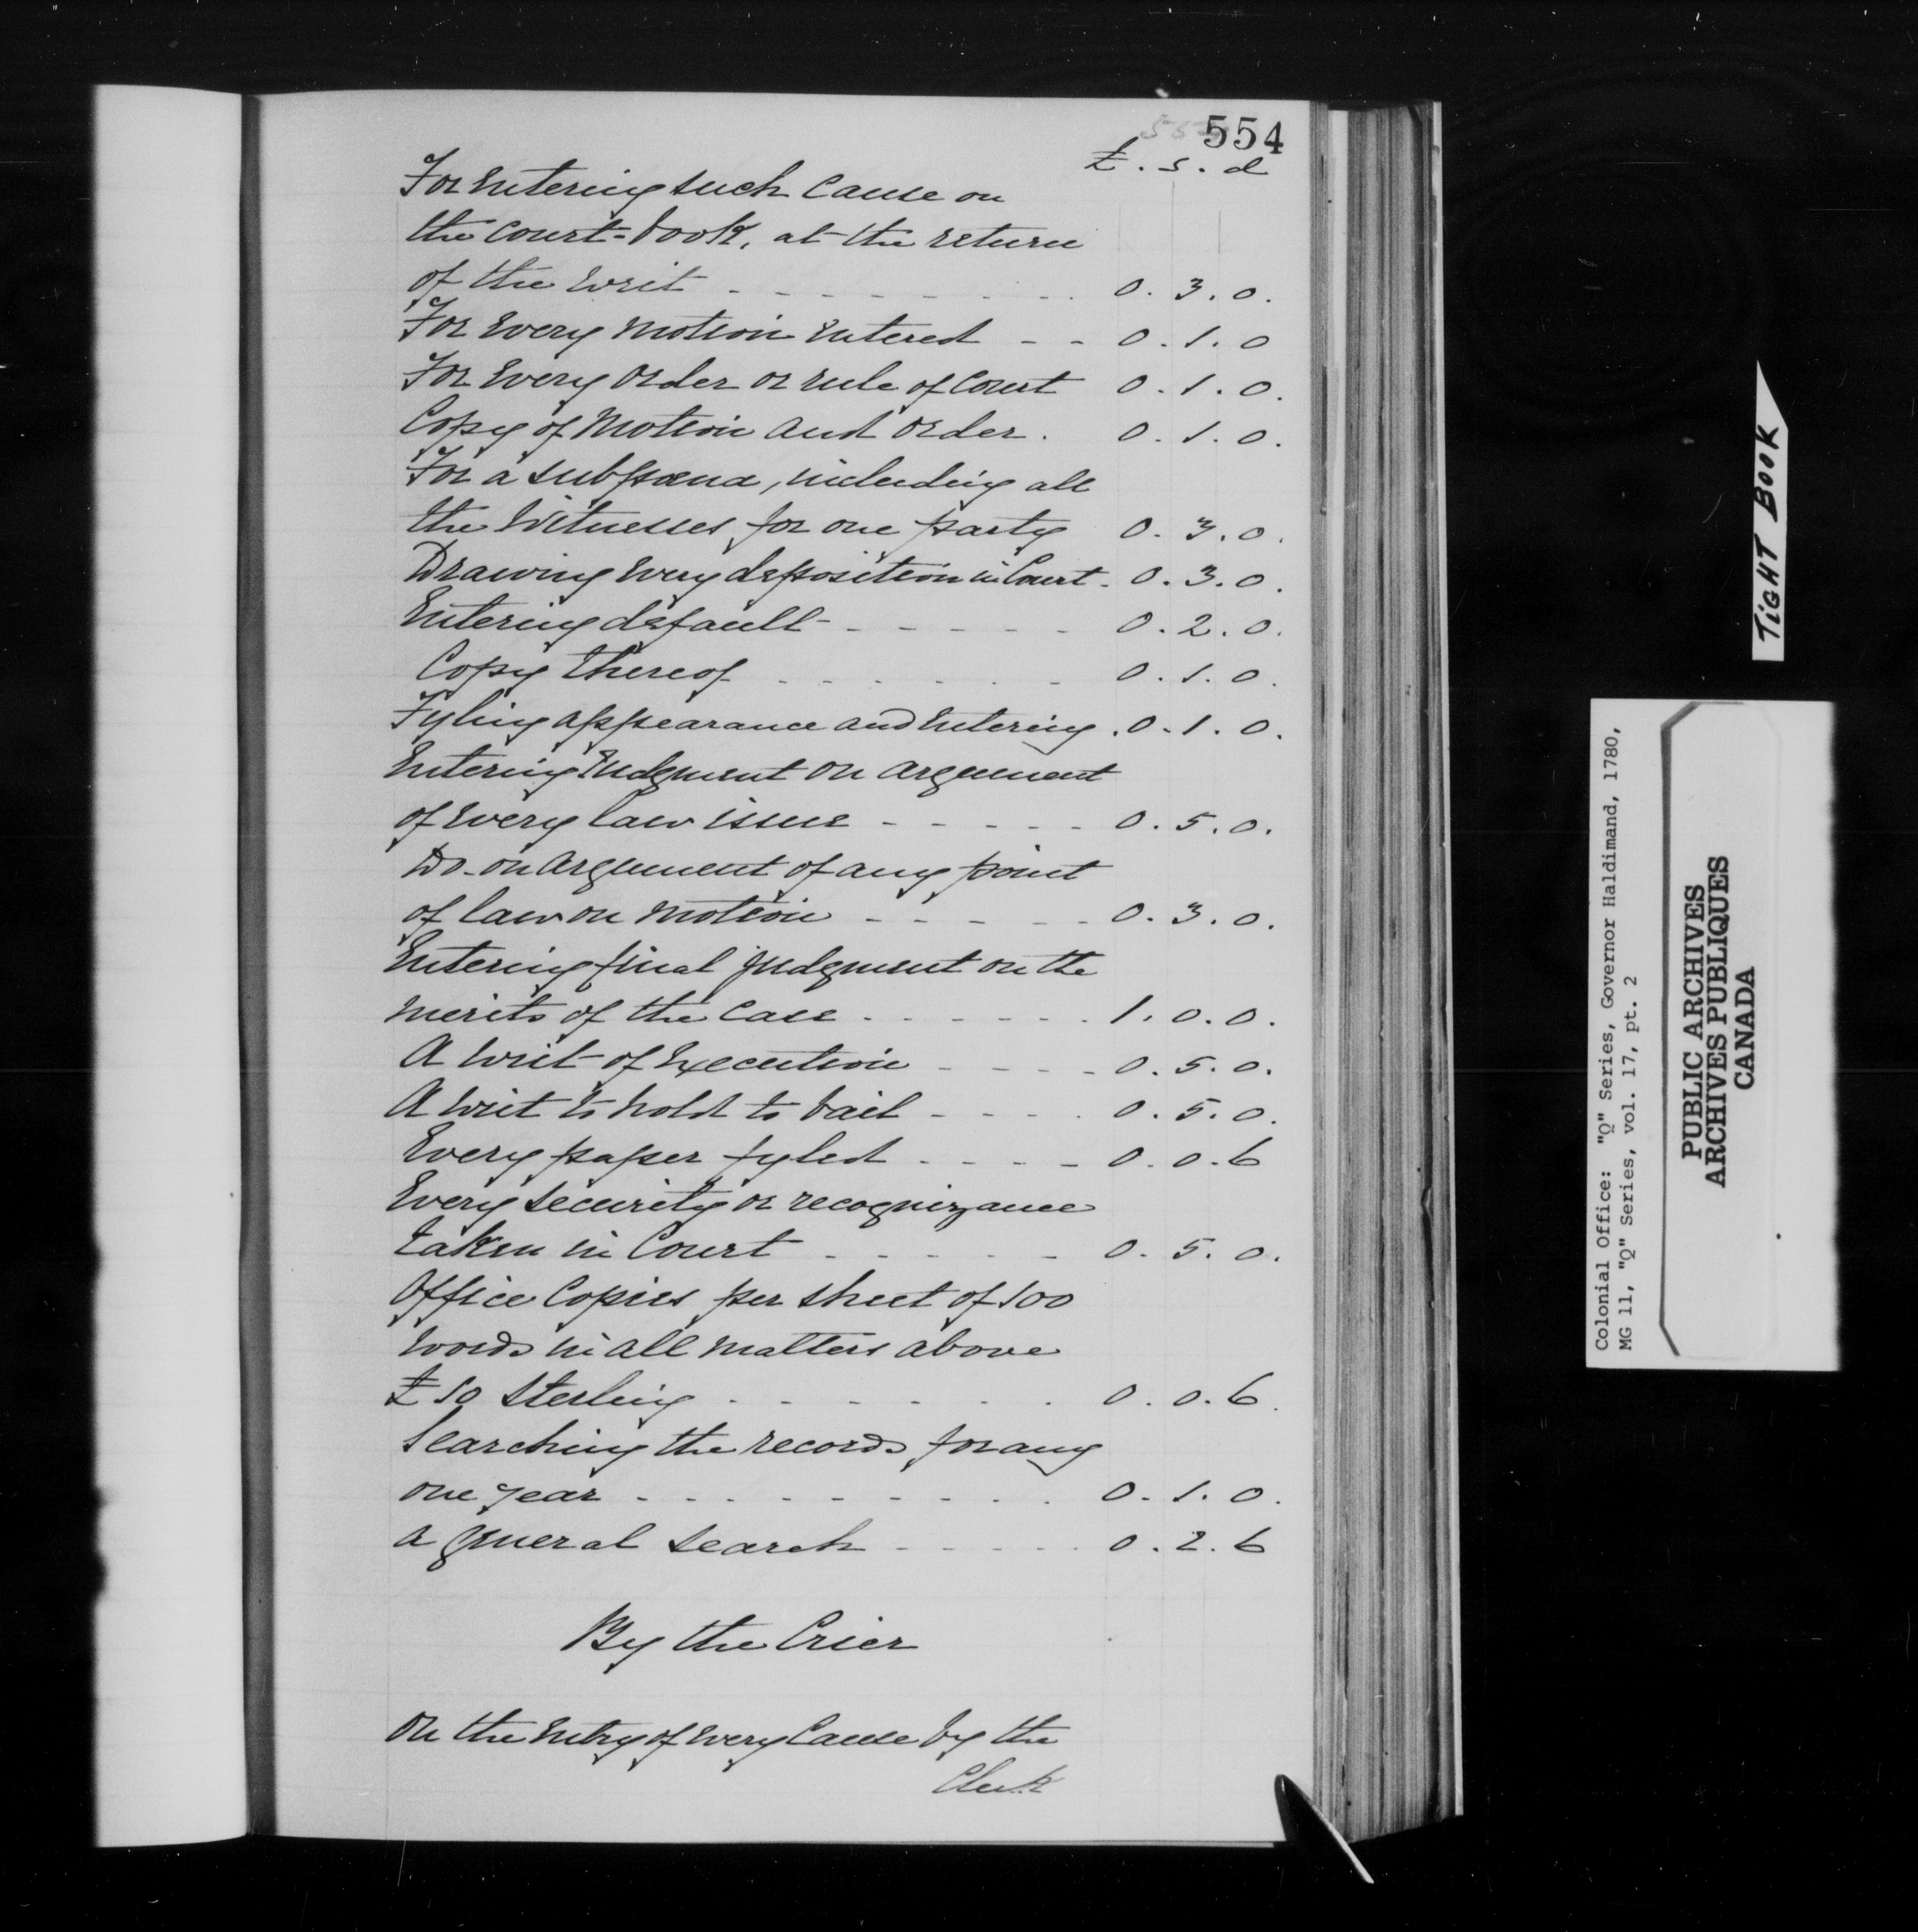 554
£ . s . d
For entering such cause on
the court-book, at the return
of the writ - - - - - - - - 0 . 3 . 0 .
For every motion entered - - 0 . 1 . 0
For every order or rule of Court 0 . 1 . 0 .
Copy of motion and order . 0 . 1 . 0 .
For a subpœna, including all
the witnesses for one party 0 . 3 . 0 .
Drawing every deposition in Court - 0 . 3 . 0 .
Entering default - - - - - - 0 . 2 . 0 .
Copy thereof - - - - - - - 0 . 1 . 0 .
Fyling appearance and entering . 0 . 1 . 0 .
Entering Judgment on argument
of every law issue - - - - - 0 . 5 . 0 .
Do - on argument of any point
of law on motion - - - - - 0 . 3 . 0 .
Entering final judgment on the
merits of the case - - - - - - 1 . 0 . 0 .
A writ of Execution - - - - 0 . 5 . 0 .
A writ to hold to bail - - - - 0 . 5 . 0 .
Every paper fyled - - - - 0 . 0 . 6
Every security or recognizance
taken in Court - - - - - - 0 . 5 . 0 .
Office Copies per sheet of 100
words in all matters above
£ 10 Sterling - - - - - - - 0 . 0 . 6 .
Searching the records for any
one year - - - - - - - - - 0 . 1 . 0 .
a general search - - - - - 0 . 2 . 6
By the Crier
On the entry of every Cause by the
Clerk
TIGHT BOOK
Colonial Office: "Q" Series, Governor Haldimand, 1780,
MG 11, "Q" Series, vol. 17, pt. 2
PUBLIC ARCHIVES
ARCHIVES PUBLIQUES
CANADA